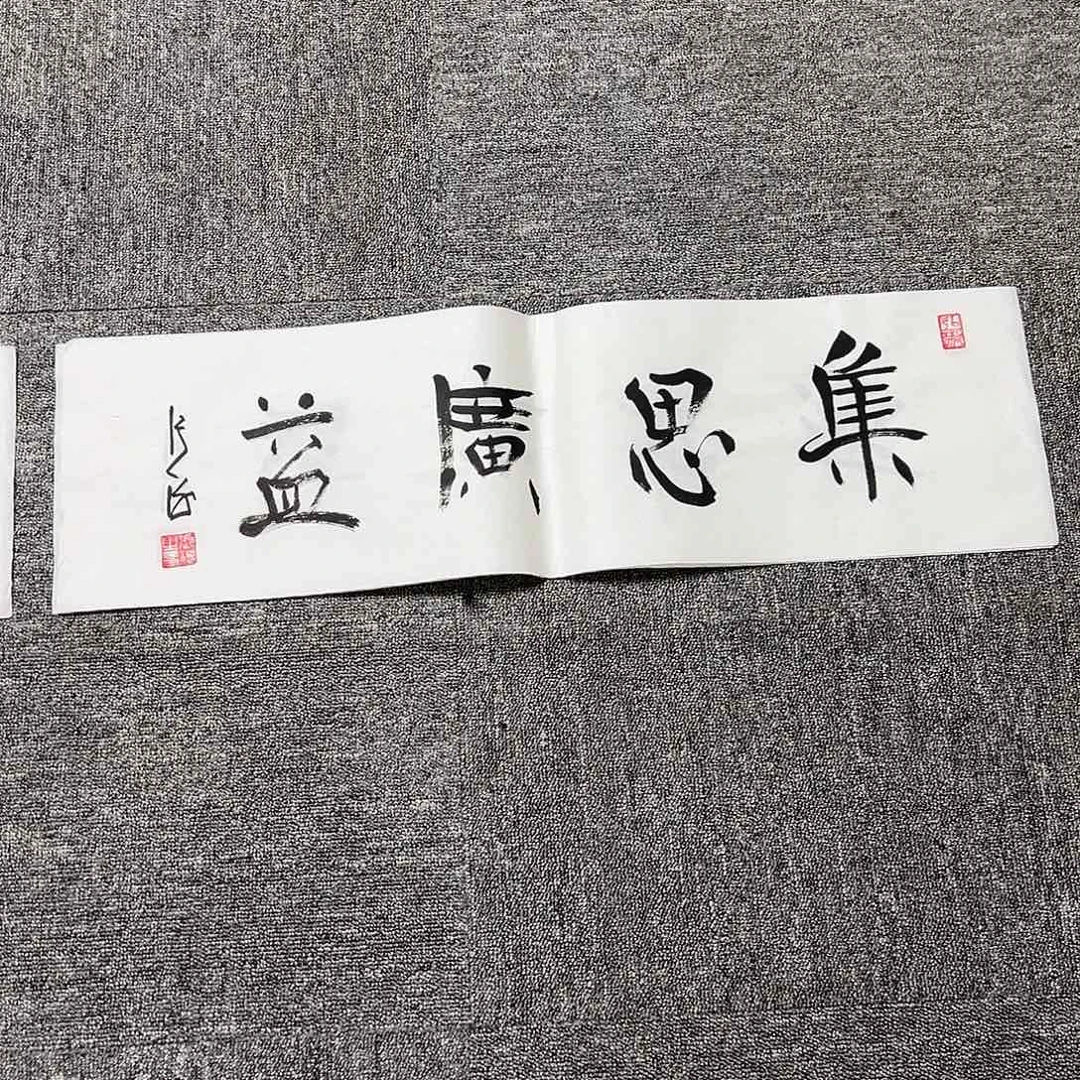 集思廣益